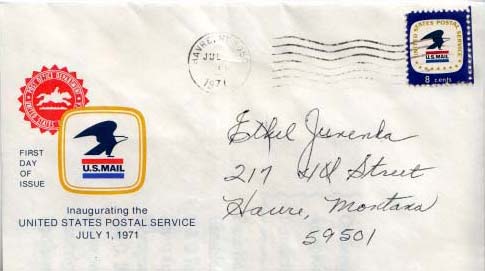 HAVRE, MONT
JUL
1
1971
UNITED STATES POSTAL SERVICE
U.S. MAIL
8 cents
POST OFFICE DEPARTMENT
UNITED STATES
FIRST
DAY
OF
ISSUE
U.S. MAIL
Inaugurating the
UNITED STATES POSTAL SERVICE
JULY 1, 1971
Ethel
217 4th Street
Havre, Montana
59501